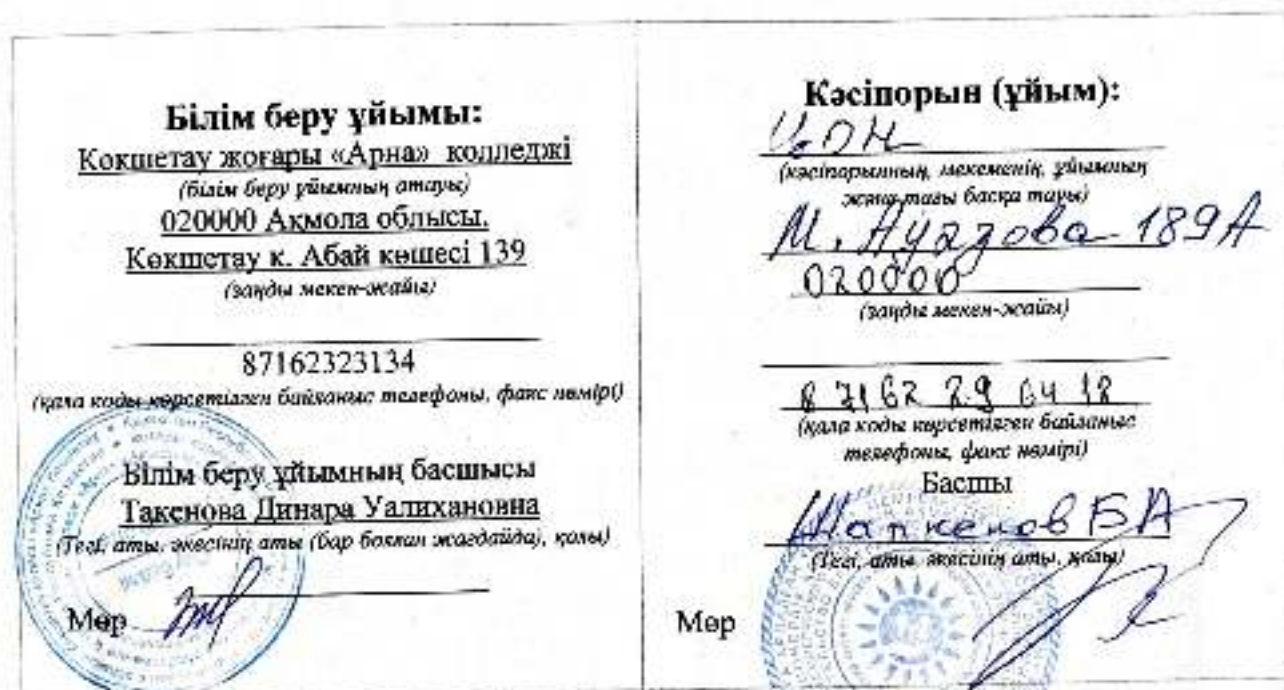 Білім беру ұйымы:
Кокшетау жоғары «Арна» колледжі
(білім беру ұйымның атауы)
020000 Ақмола облысы.
Көкшетау к. Абай көшесі 139
(заңды мекен-жайы)
87162323134
(қала коды көрсетілген байланыс телефоны, факс нөмірі)
Білім беру ұйымның басшысы
Такенова Динара Уалихановна
(Тегі, аты, әкесінің аты (бар болған жағдайда), қолы)
Мөр
Кәсіпорын (ұйым):
ЦОН
(кәсіпорынның, мекеменің, ұйымның
және тағы басқа тауы)
М. Ауэзова 189А
020000
(заңды мекен-жайы)
8 7162 29 64 12
(қала коды көрсетілген байланыс
телефоны, факс нөмірі)
Басшы
Шапкенов БА
(Тегі, аты, әкесінің аты, қолы)
Мөр